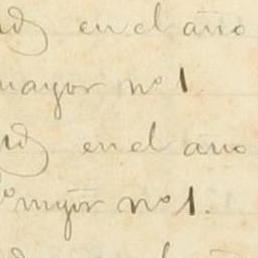 en el año
mayor nº 1
en el año
mayor nº 1.